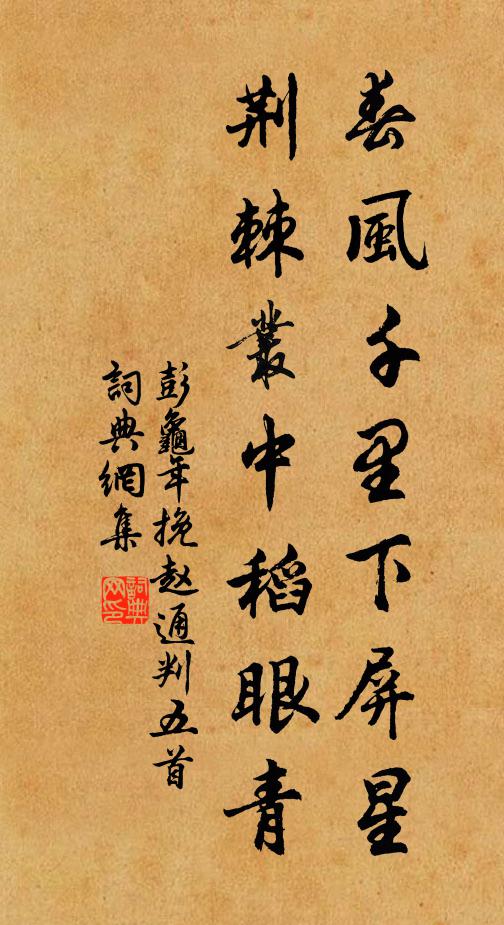 春風千里下屏星
荆棘叢中稻眼青
彭龜年挽赵通判五首
詞典網集
詞典網印